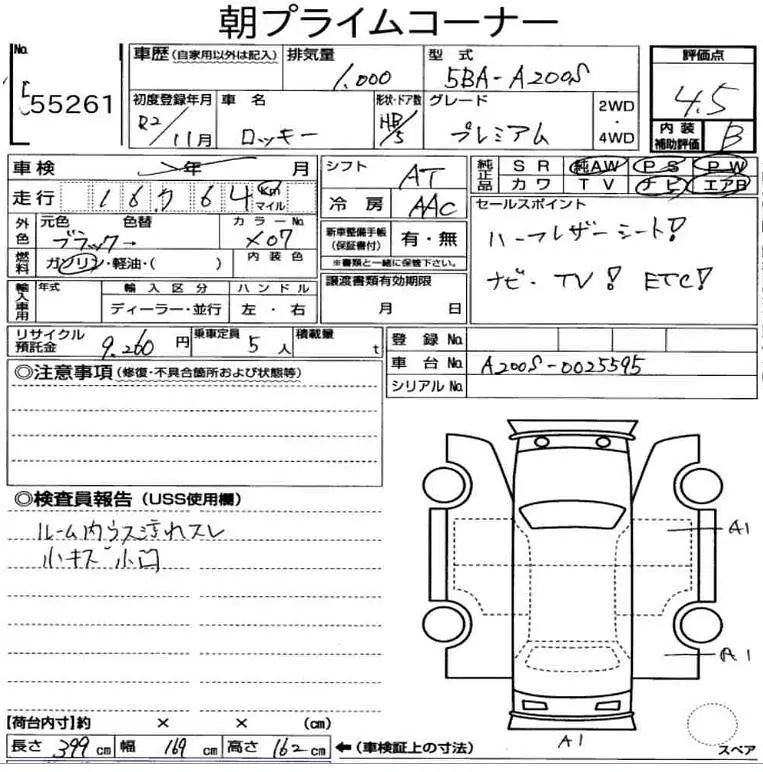 朝プライムコーナー
No. 55261
車歴 (自家用以外は記入) 排気量 1.000 型式 5BA-A200S 評価点 4.5
初度登録年月 R2/11月 車名 ロッキー 形状・ドア数 HB/5 グレード プレミアム 2WD・4WD 内装補助評価 B
車検 年 月 シフト AT 純正品 SR 純AW PS PW
カワ TV ナビ エアB
走行 16,764 km マイル 冷房 AAC セールスポイント
外色 元色 色替 カラーNo. ブラック→ X07
新車整備手帳(保証書付) 有・無 ハーフレザーシート!
燃料 ガソリン・軽油・( ) 内装色 ※書類と一緒に保管下さい。 ナビ・TV! ETC!
輸入車用 年式 輸入区分 ハンドル 譲渡書類有効期限
ディーラー・並行 左・右 月 日
リサイクル預託金 9.260円 乗車定員 5人 積載量 t 登録No.
車台No. A200S-0025595
シリアルNo.
◎注意事項 (修復・不具合箇所および状態等)
◎検査員報告 (USS使用欄)
ルーム内ウス汚れスレ
小キズ小凹
A1
A1
A1
スペア
【荷台内寸】約 × × (cm)
長さ 399cm 幅 169cm 高さ 162cm ←(車検証上の寸法)